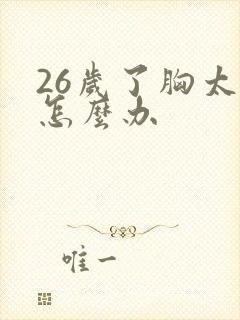 26歲了胸太
怎麼办
唯一